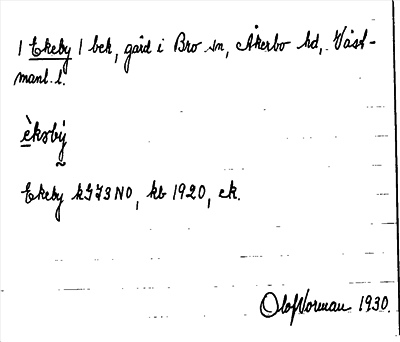 1 Ekeby 1 beh, gård i Bro sn, Åkerbo hd, Väst-
manl. l.
èksbý
Ekeby kGJ3NO, kb 1920, ek.
Olof Norman 1930.